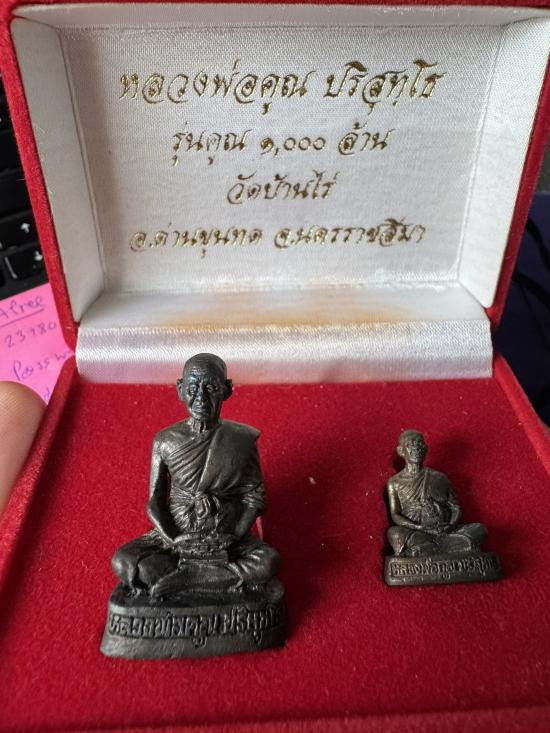 หลวงพ่อคูณ ปริสุทฺโธ
รุ่นคูณ ๑,๐๐๐ ล้าน
วัดบ้านไร่
อ.ด่านขุนทด จ.นครราชสีมา
23980
หลวงพ่อคูณ ปริสุทฺโธ
หลวงพ่อคูณ ปริสุทฺโธ